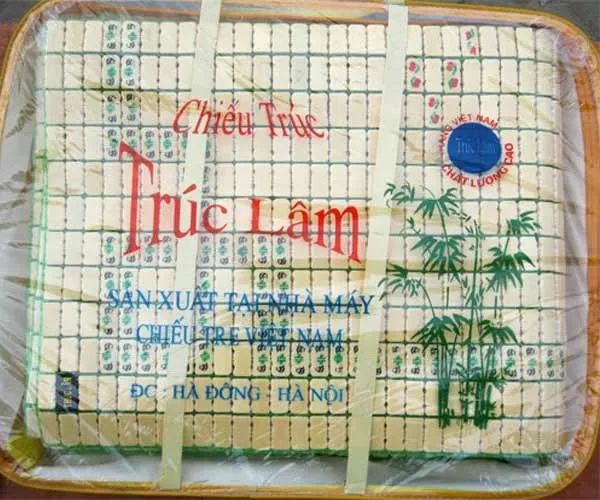 Chiếu Trúc
Trúc Lâm
HÀNG VIỆT NAM
Trúc Lâm
CHẤT LƯỢNG CAO
SẢN XUẤT TẠI NHÀ MÁY
CHIẾU TRE VIỆT NAM
ĐC : HÀ ĐÔNG - HÀ NỘI